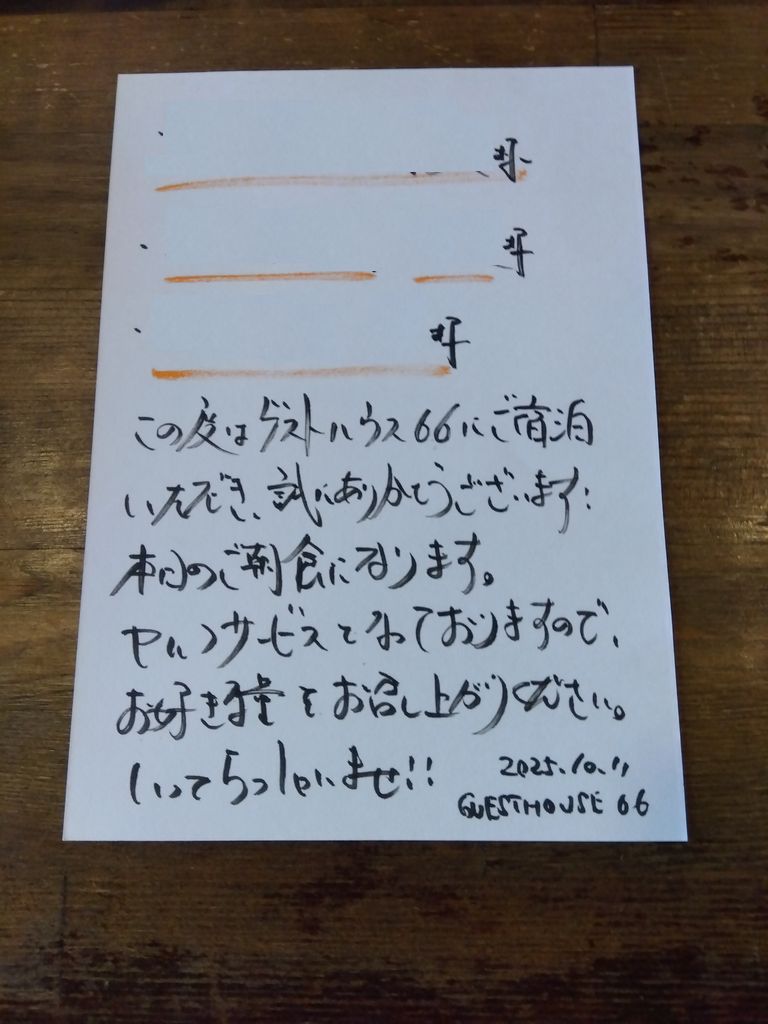 様
様
様
この度はゲストハウス66にご宿泊
いただき、誠にありがとうございます!
本日のご朝食になります。
セルフサービスとなっておりますので、
お好き量をお召し上がりください。
いってらっしゃいませ!!
2025.10.11
GUESTHOUSE 66